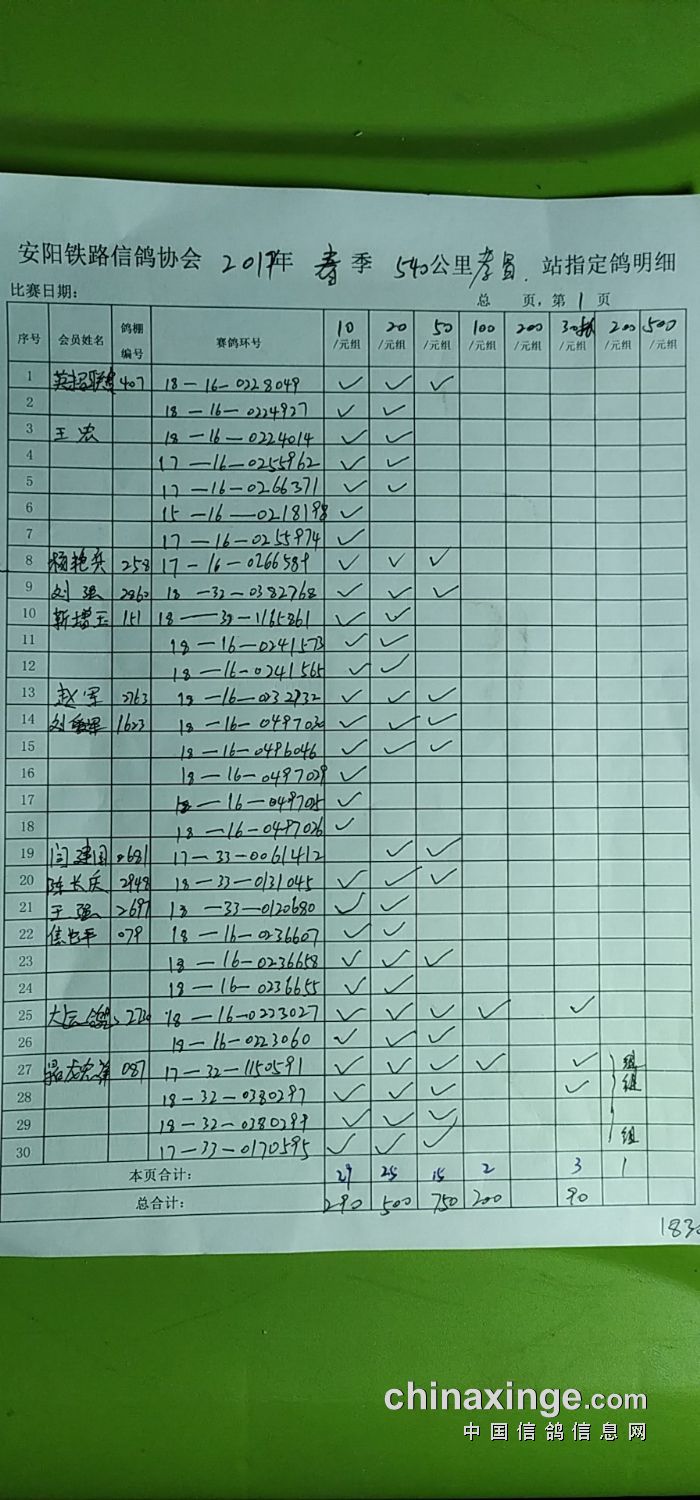 安阳铁路信鸽协会 2019年 春季 540公里孝昌 站指定鸽明细
比赛日期: 总 页,第1页
序号 会员姓名 鸽棚编号 赛鸽环号 10/元组 20/元组 50/元组 100/元组 200/元组 30/元组 200/元组 500/元组
1 407 18-16-0228049 ✓ ✓ ✓
2 18-16-0224927 ✓ ✓
3 王宏 18-16-0224014 ✓ ✓
4 17-16-0255962 ✓ ✓
5 17-16-0266371 ✓ ✓
6 15-16-0218198 ✓
7 17-16-0255974 ✓
8 杨艳兵 258 17-16-0266589 ✓ ✓ ✓
9 刘强 2860 18-32-0382768 ✓ ✓ ✓
10 靳增玉 151 18-39-1165861 ✓ ✓
11 18-16-0241573 ✓ ✓
12 18-16-0241565 ✓ ✓
13 赵军 2763 18-16-0232932 ✓ ✓ ✓
14 1623 18-16-0497030 ✓ ✓ ✓
15 18-16-0496046 ✓ ✓ ✓
16 18-16-0497029 ✓
17 18-16-049705 ✓
18 18-16-0497026 ✓
19 闫建国 0681 17-33-0061412 ✓ ✓
20 陈长庆 2948 18-33-0131045 ✓ ✓ ✓
21 王强 2697 18-33-0120680 ✓ ✓
22 079 18-16-0236607 ✓ ✓
23 18-16-0236658 ✓ ✓ ✓
24 18-16-0236655 ✓ ✓
25 18-16-0223027 ✓ ✓ ✓ ✓ ✓
26 18-16-0223060 ✓ ✓ ✓
27 087 17-32-1150591 ✓ ✓ ✓ ✓ ✓ 组
28 18-32-0380297 ✓ ✓ ✓ ✓ 组
29 18-32-0380299 ✓ ✓ ✓
30 17-33-0170595 ✓ ✓ ✓ 组
本页合计: 29 25 15 2 3 1
总合计: 290 500 750 200 90
1830
chinaxinge.com
中国信鸽信息网